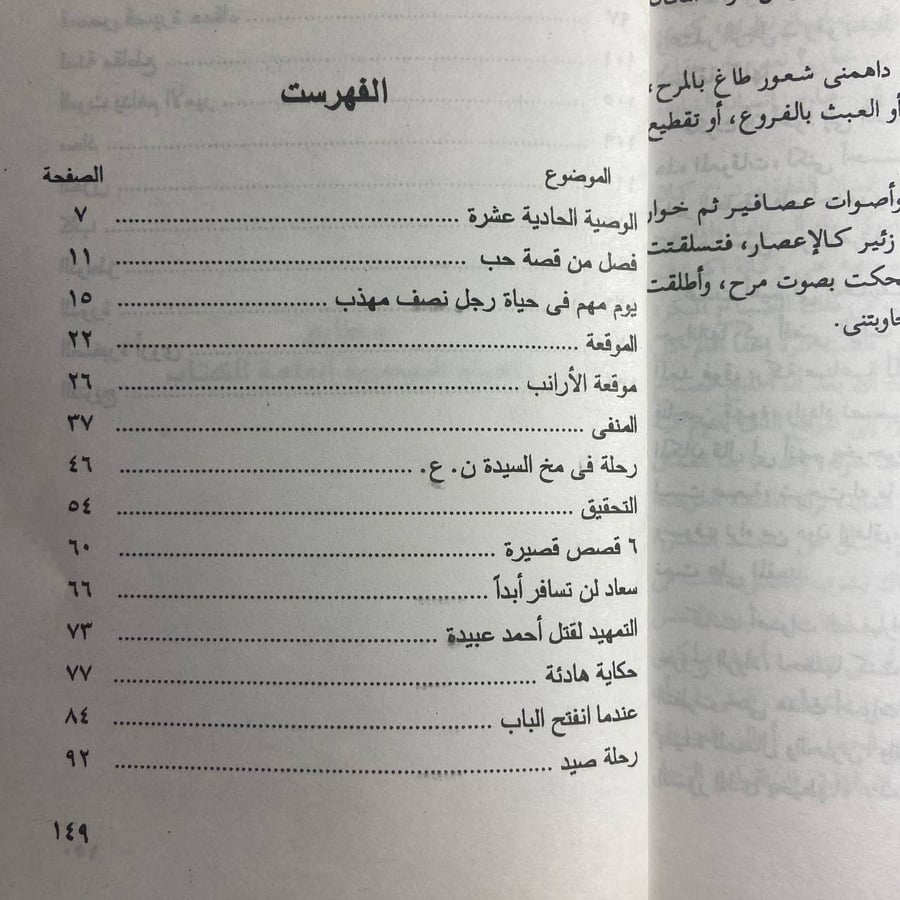 داهمنى شعور طاغ بالمرح،
أو العبث بالفروع، أو تقطيع
وأصوات عصافير ثم خوار
زئير كالإعصار، فتسلقت
بصوت مرح، وأطلقت
الفهرست
الموضوع الصفحة
الوصية الحادية عشرة ................ ٧
فصل من قصة حب ................ ١١
يوم مهم فى حياة رجل نصف مهذب ................ ١٥
الموقعة ................ ٢٢
موقعة الأرانب ................ ٢٦
المنفى ................ ٣٧
رحلة فى مخ السيدة ن. ع. ................ ٤٦
التحقيق ................ ٥٤
٦ قصص قصيرة ................ ٦٠
سعاد لن تسافر أبداً ................ ٦٦
التمهيد لقتل أحمد عبيدة ................ ٧٣
حكاية هادئة ................ ٧٧
عندما انفتح الباب ................ ٨٤
رحلة صيد ................ ٩٢
١٤٩